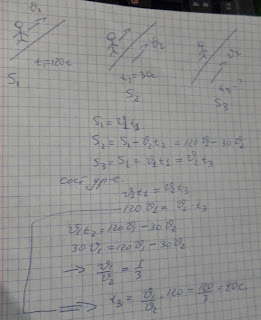 ϑ₁ ϑ₂ ϑ₂
t₁=120c t₁=30c t₃?
S₁ S₂ S₃
S₁ = ϑ₁t₁
S₂ = S₁ - ϑ₁t₂ = 120ϑ₁ - 30ϑ₂
S₃ = S₁ = ϑ₁t₁ = ϑ₂t₃
сост. ур-е
ϑ₁t₁ = ϑ₂t₃
120ϑ₁ = ϑ₂ t₃
ϑ₁t₂ = 120ϑ₁ - 30ϑ₂
30ϑ₂ = 120ϑ₁ - 30ϑ₂
→ ϑ₁/ϑ₂ = 1/3
⇒ t₃ = ϑ₁/ϑ₂ · 120 = 120/3 = 40c